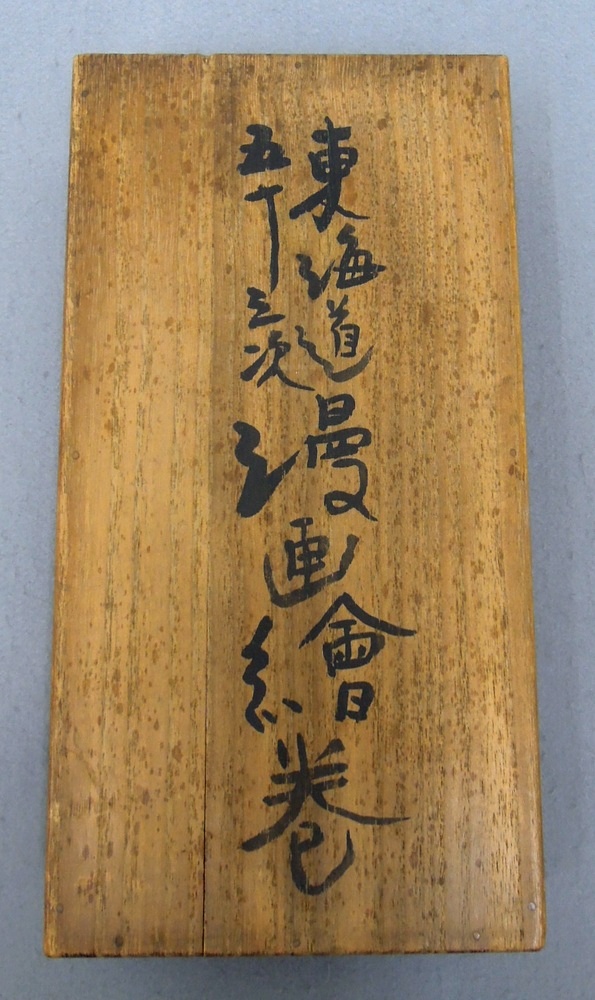 東海道
五十三次
漫画繪巻